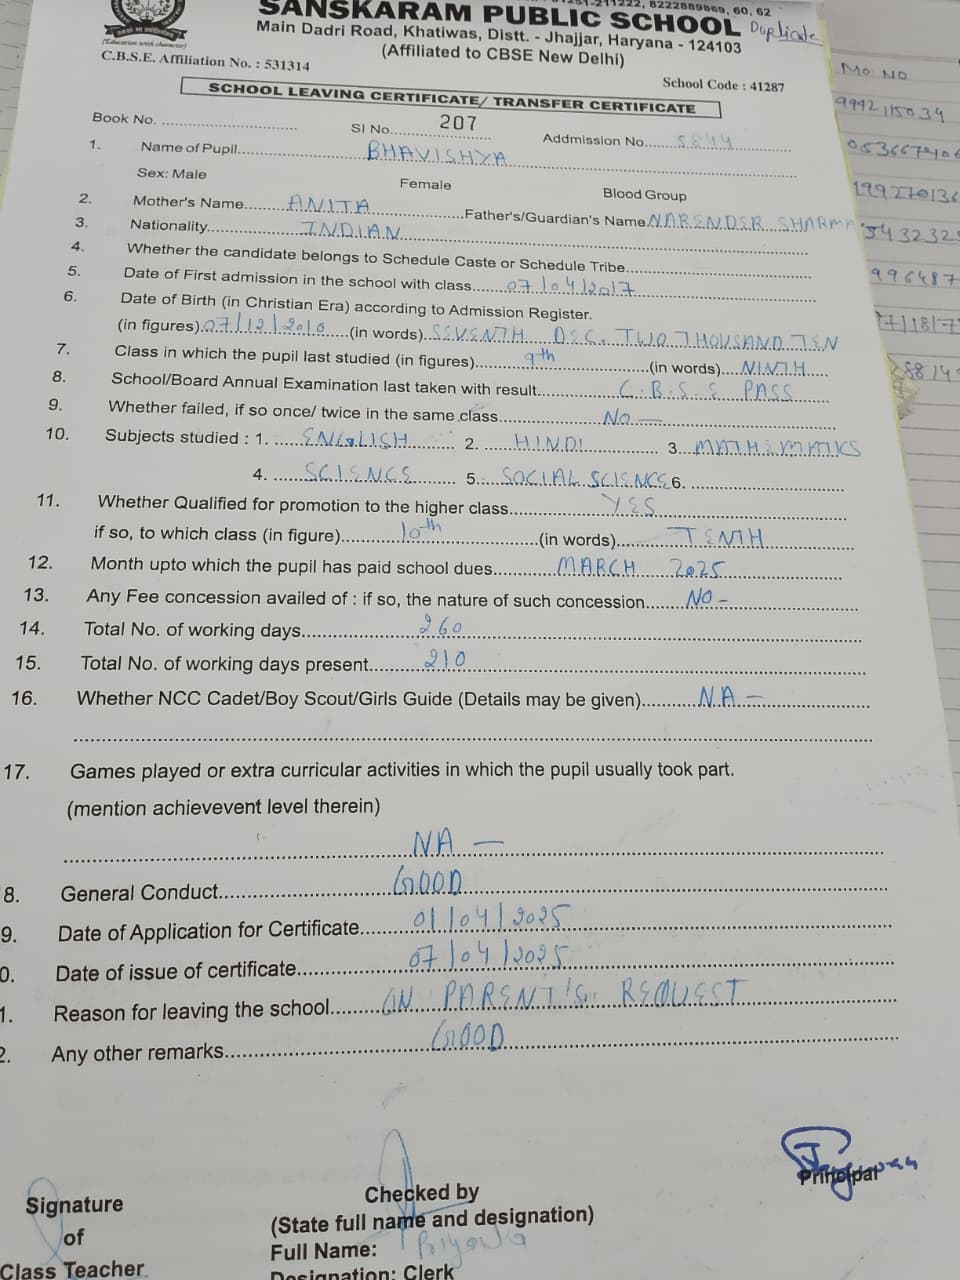 211222, 8222889869, 60, 62
SANSKARAM PUBLIC SCHOOL Duplicate
Main Dadri Road, Khatiwas, Distt. - Jhajjar, Haryana - 124103
(Education with character)
(Affiliated to CBSE New Delhi)
C.B.S.E. Affiliation No. : 531314
School Code : 41287
SCHOOL LEAVING CERTIFICATE/ TRANSFER CERTIFICATE
Book No. Sl No. 207 Addmission No. 5844
1. Name of Pupil BHAVISHYA
Sex: Male Female Blood Group
2. Mother's Name ANITA Father's/Guardian's Name NARENDER SHARMA
3. Nationality INDIAN
4. Whether the candidate belongs to Schedule Caste or Schedule Tribe
5. Date of First admission in the school with class 07/04/2017
6. Date of Birth (in Christian Era) according to Admission Register.
(in figures) 07/12/2010 (in words) SEVENTH DEC. TWO THOUSAND TEN
7. Class in which the pupil last studied (in figures) 9th (in words) NINTH
8. School/Board Annual Examination last taken with result C.B.S.E PASS
9. Whether failed, if so once/ twice in the same class No —
10. Subjects studied : 1. ENGLISH 2. HINDI 3. MATHEMATICS
4. SCIENCE 5. SOCIAL SCIENCE 6.
11. Whether Qualified for promotion to the higher class YES
if so, to which class (in figure) 10th (in words) TENTH
12. Month upto which the pupil has paid school dues MARCH 2025
13. Any Fee concession availed of : if so, the nature of such concession NO -
14. Total No. of working days 260
15. Total No. of working days present 210
16. Whether NCC Cadet/Boy Scout/Girls Guide (Details may be given) NA —
17. Games played or extra curricular activities in which the pupil usually took part.
(mention achievevent level therein)
NA —
8. General Conduct GOOD
9. Date of Application for Certificate 01/04/2025
0. Date of issue of certificate 07/04/2025
1. Reason for leaving the school ON PARENT'S REQUEST
2. Any other remarks GOOD
Principal
Signature
of
Class Teacher
Checked by
(State full name and designation)
Full Name: Priyanka
Designation: Clerk
Mo No
9992115034